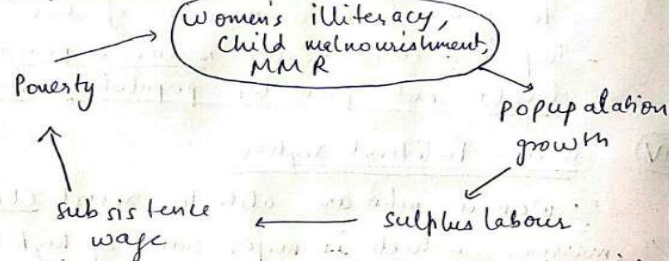 women's illiteracy,
Child malnourishment,
MMR
Poverty
popupalation
growth
sulplus labour
subsistence
wage